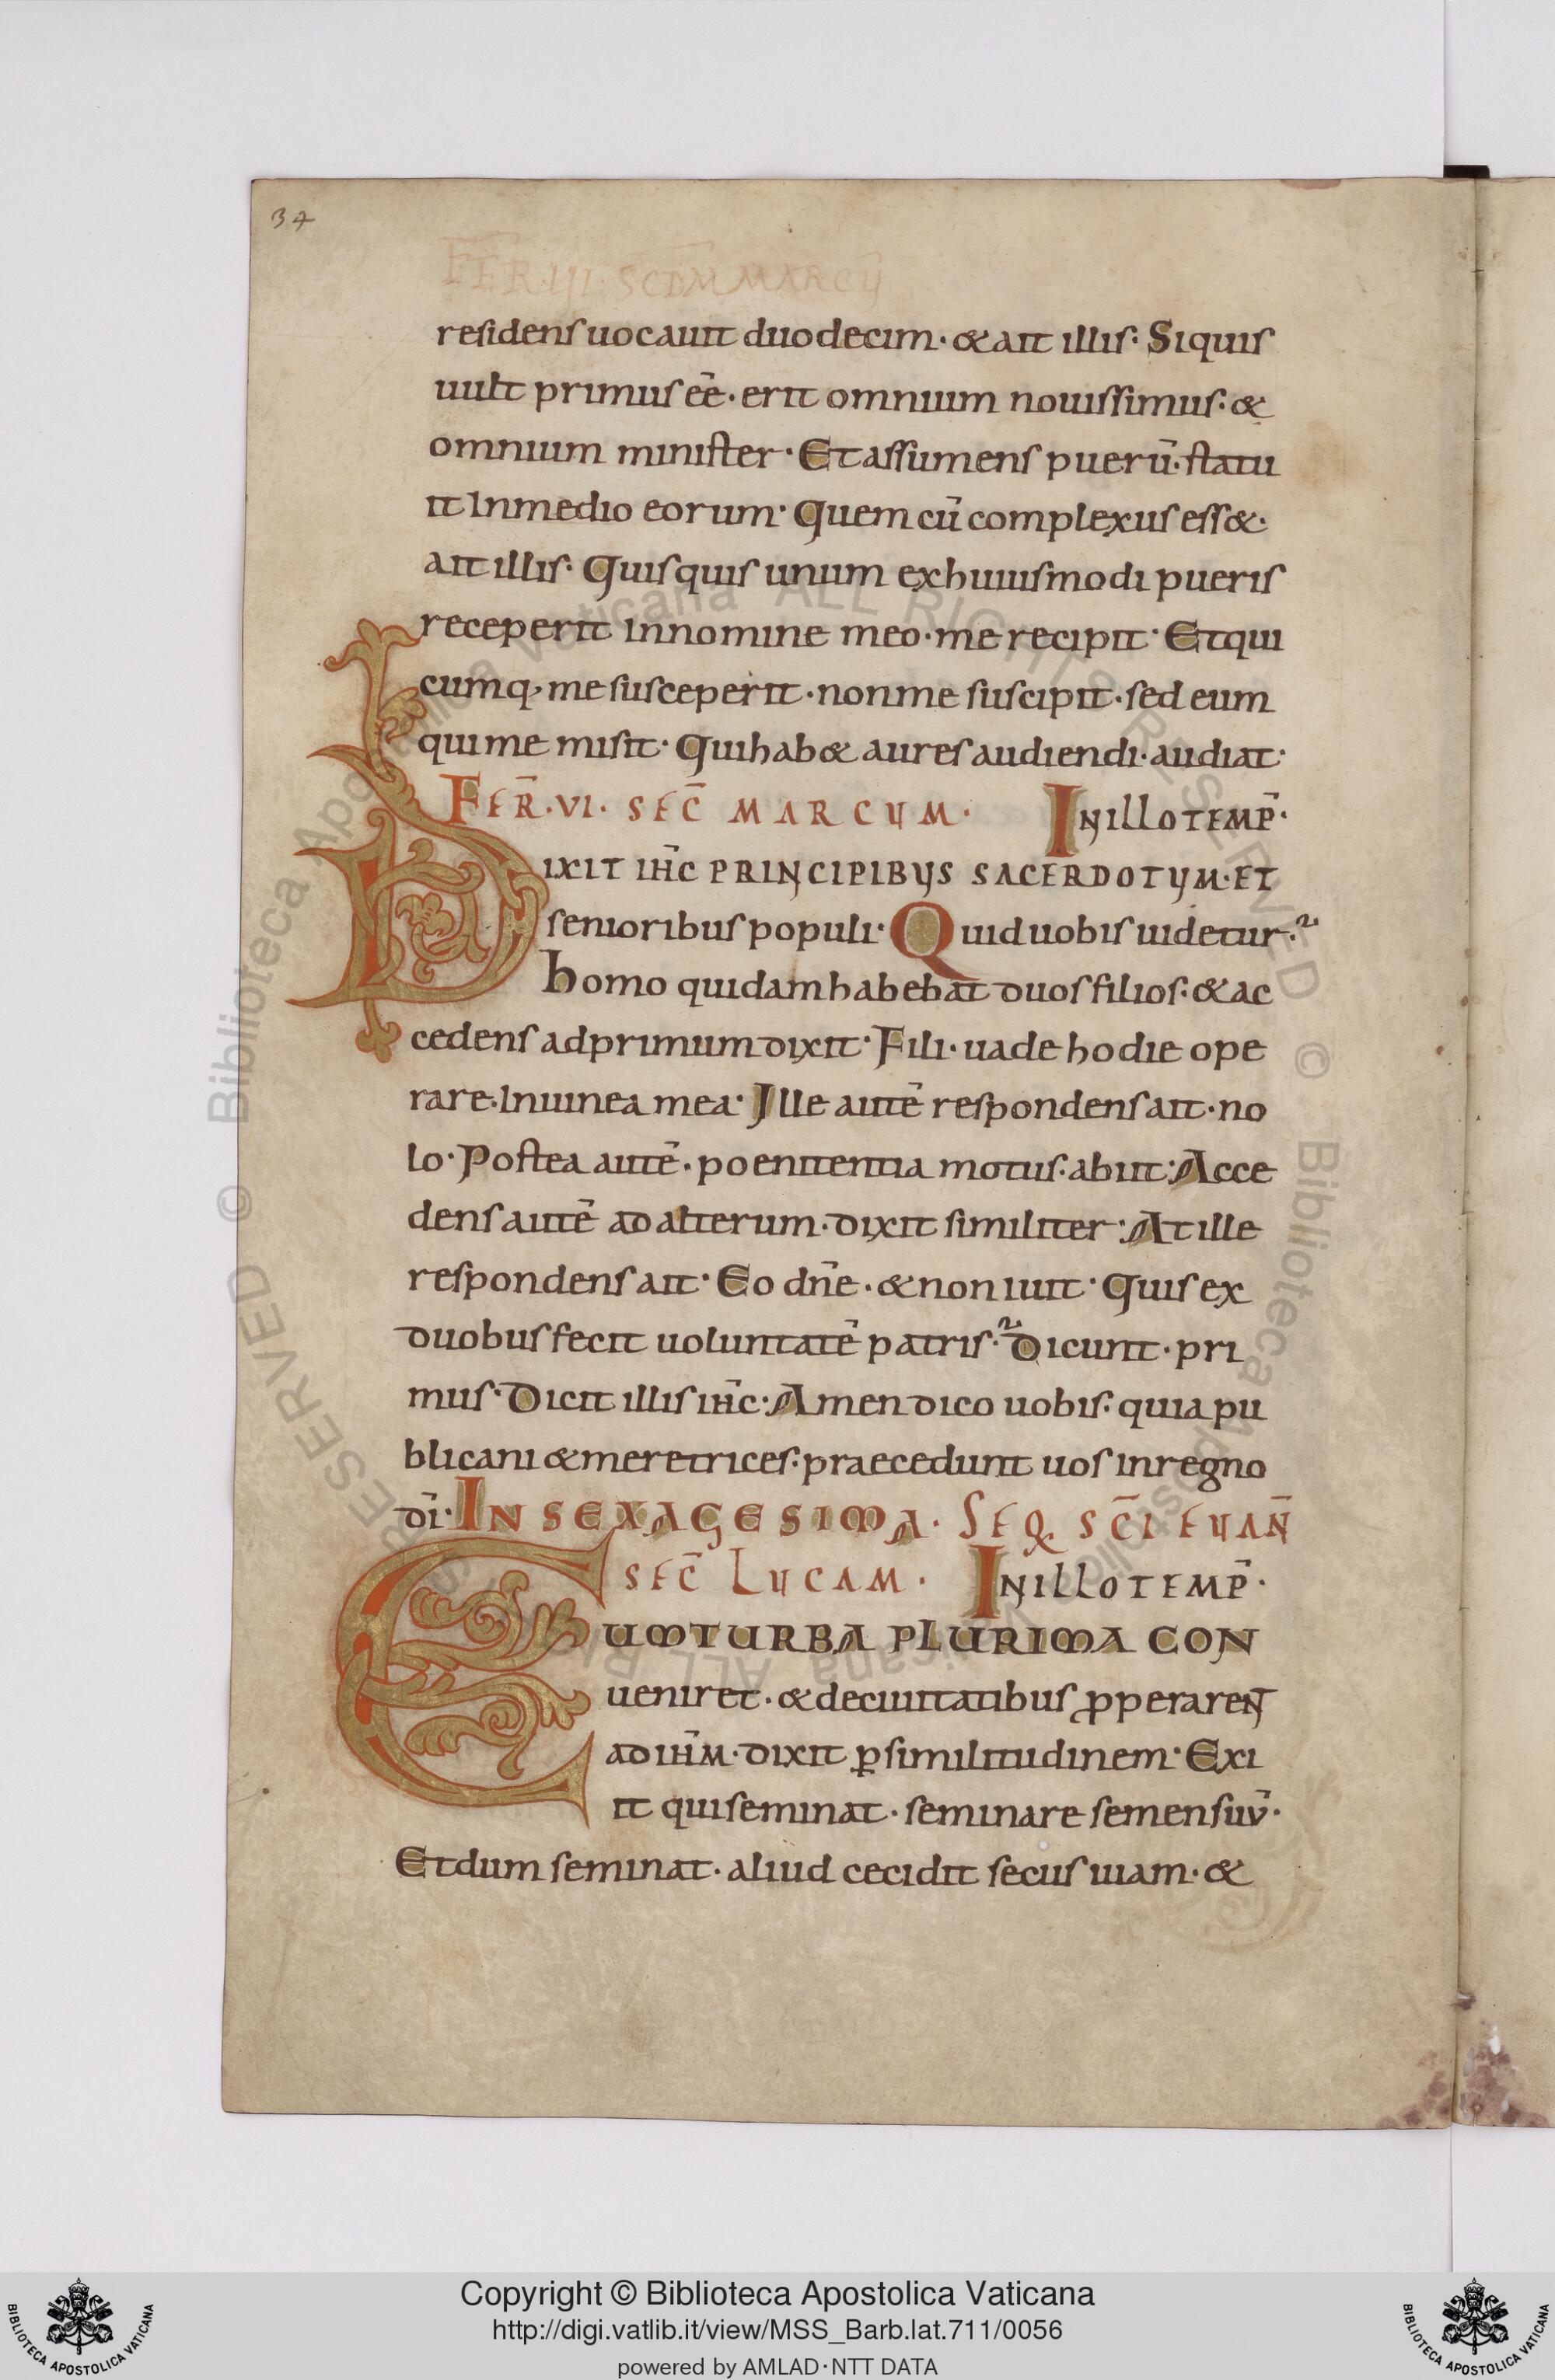 34
FER·III· SCDM MARCU
residens uocauit duodecim· & ait illis· Siquis
uult primus eē· erit omnium nouissimus· &
omnium minister· Et assumens puerū· statu
it In medio eorum· Quem cū complexus ess&·
ait illis· Quisquis unum exhuiusmodi pueris
receperit In nomine meo· me recipit· Etqui
cumq; me susceperit· non me suscipit· sed eum
qui me misit· Quihab& aures audiendi· audiat·
FER̄·VI· SEC̄ MARCUM· IN ILLO TEMP̄·
DIXIT IH̄C PRINCIPIBUS SACERDOTUM· ET
senioribus populi· Quid uobis uidetur·
homo quidam habebat duos filios· & ac
cedens ad primum dixit· Fili· uade hodie ope
rare· In uinea mea· Ille autē respondens ait· no
lo· Postea autē· poenitentia motus· abiit· Acce
dens autē ad alterum· dixit similiter· At ille
respondens ait· Eo dn̄e· & non iuit· Quis ex
duobus fecit uoluntatē patris· Dicunt· pri
mus· Dicit illis ih̄c· Amen dico uobis· quia pu
blicani & meretrices· praecedunt uos in regno
dī· IN SEXAGESIMA· SEQ. SC̄I EUAN̄
SEC̄ LUCAM· IN ILLO TEMP̄·
CUM TURBA PLURIMA CON
ueniret· & deciuitatibus ꝓperarent
ad ih̄m· dixit ꝑ similitudinem· Exi
it qui seminat· seminare semen suū·
Et dum seminat· aliud cecidit secus uiam· &
Copyright © Biblioteca Apostolica Vaticana
http://digi.vatlib.it/view/MSS_Barb.lat.711/0056
powered by AMLAD·NTT DATA
BIBLIOTECA APOSTOLICA VATICANA
BIBLIOTECA APOSTOLICA VATICANA